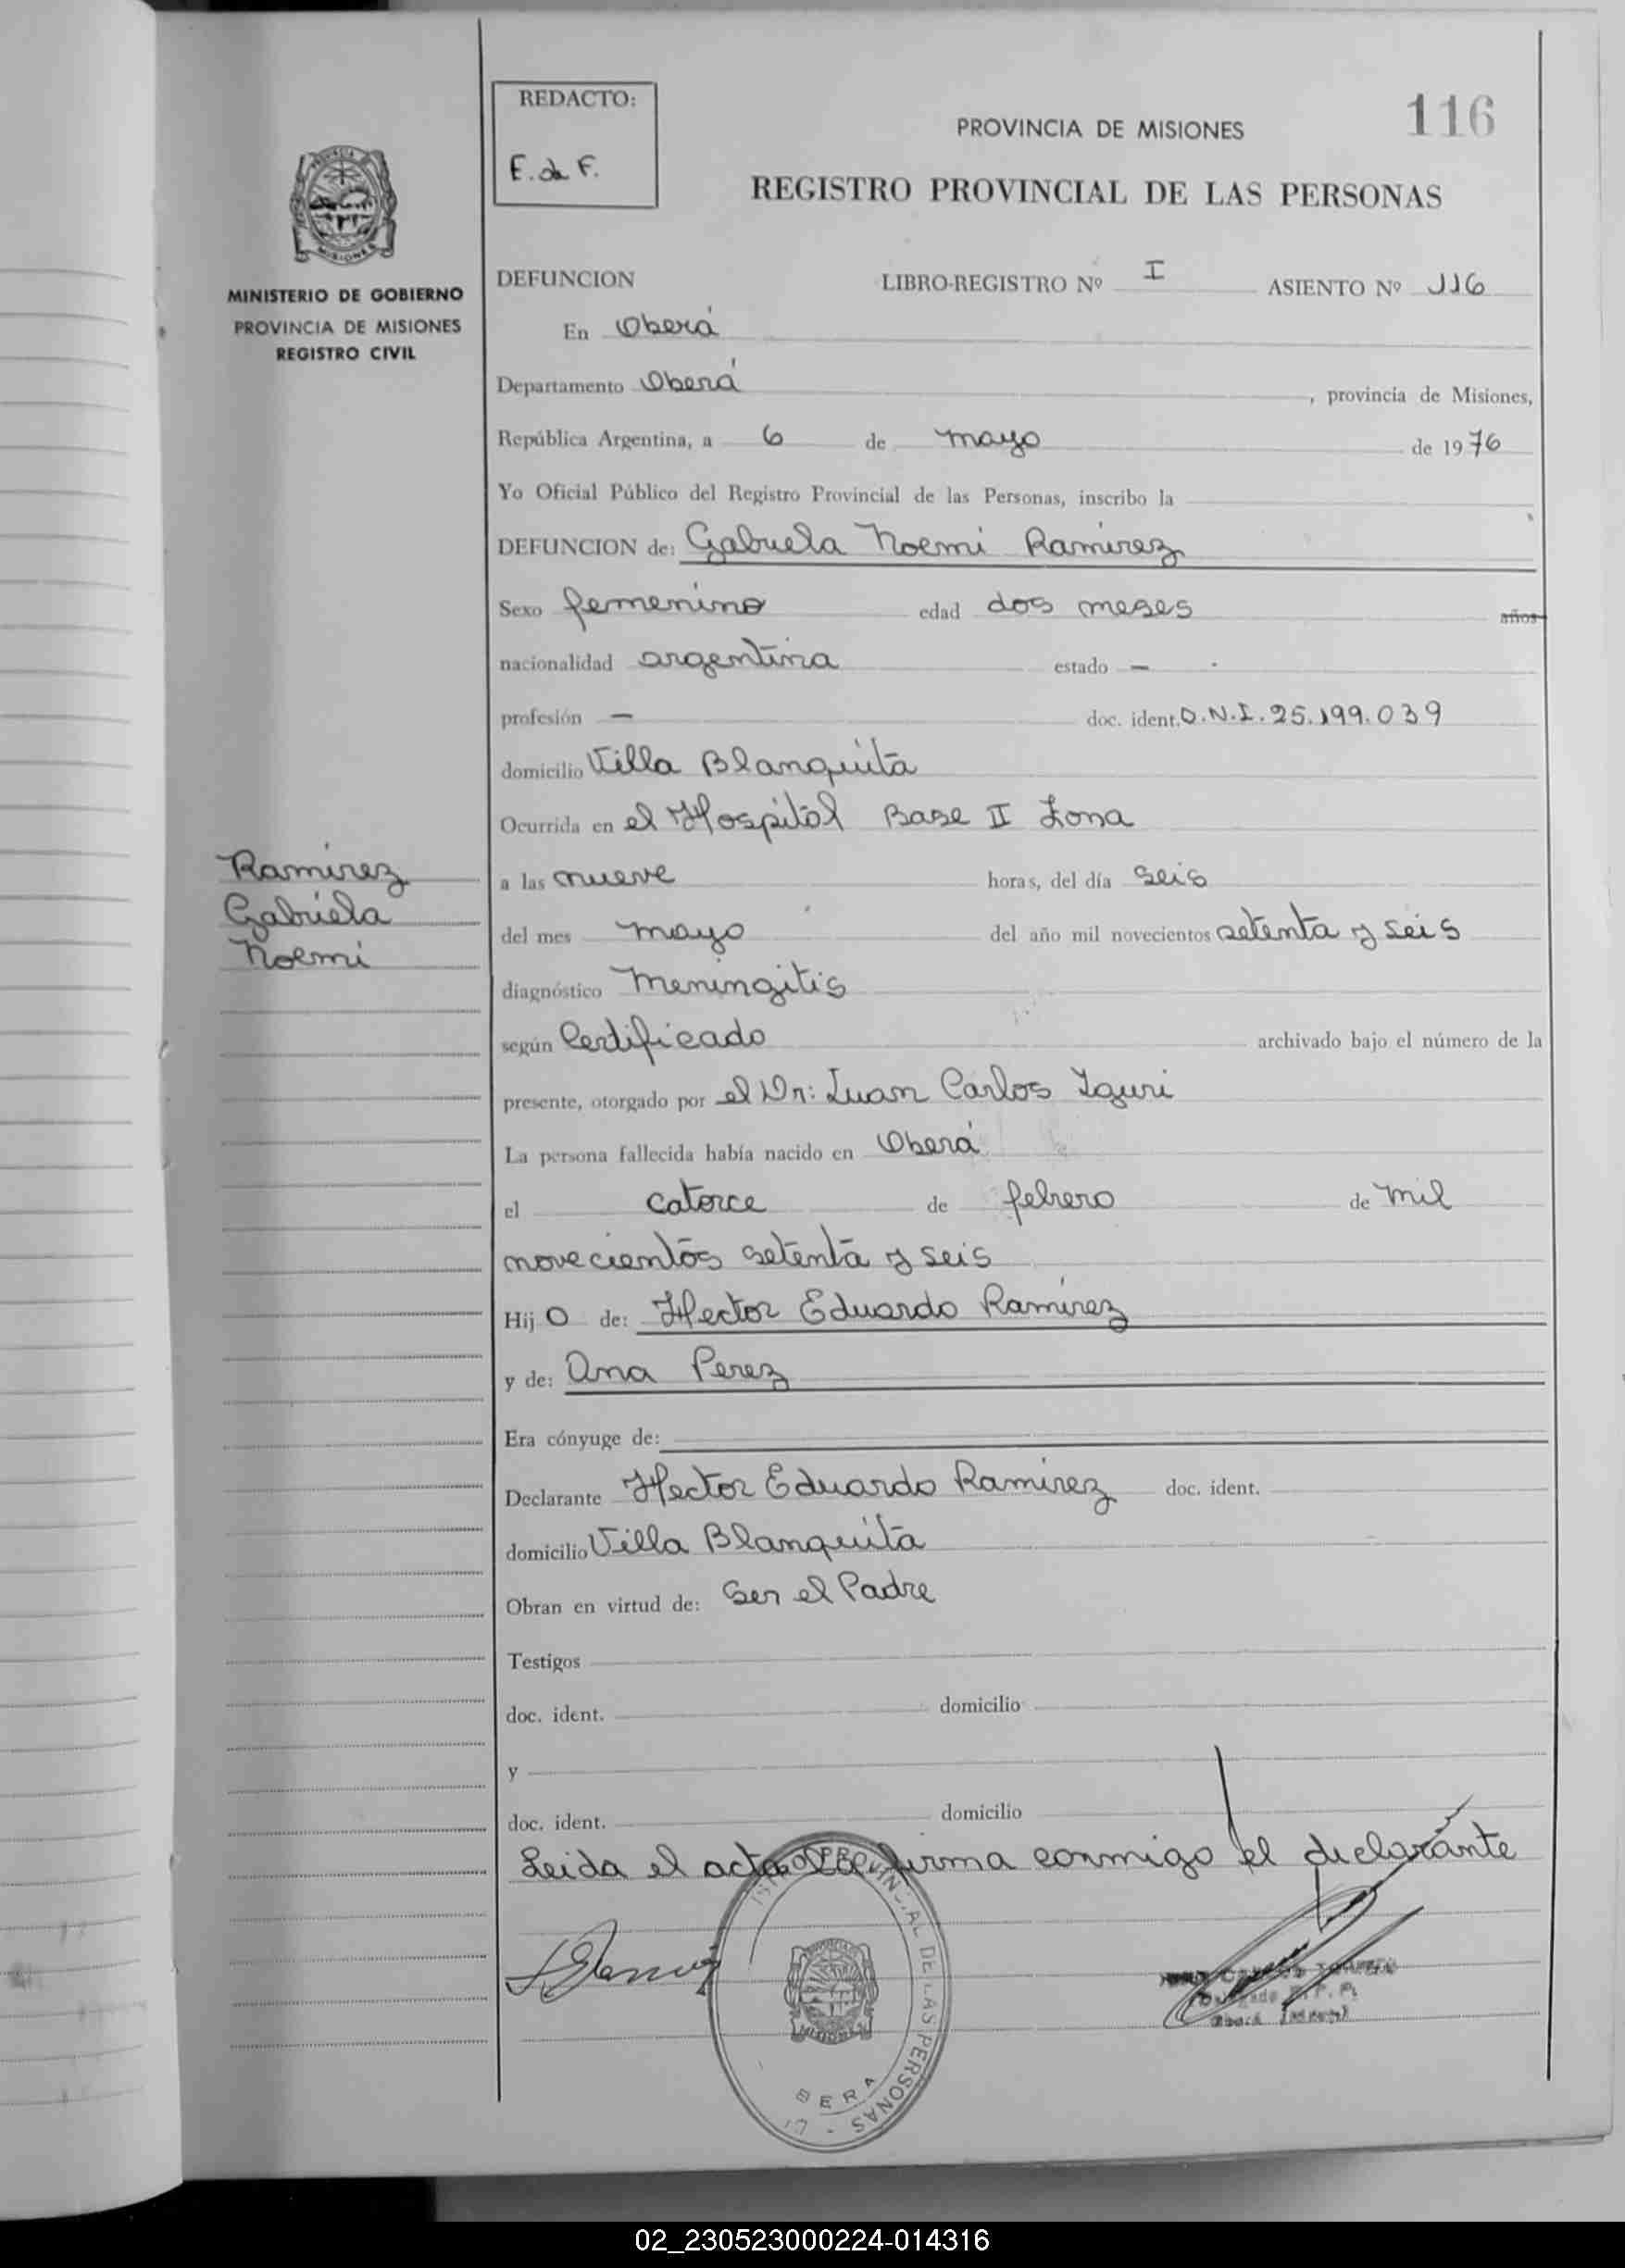 REDACTO:
E. da F.
116
PROVINCIA DE MISIONES
REGISTRO PROVINCIAL DE LAS PERSONAS
MINISTERIO DE GOBIERNO
PROVINCIA DE MISIONES
REGISTRO CIVIL
DEFUNCION LIBRO-REGISTRO Nº I ASIENTO Nº 116
En Oberá
Departamento Oberá, provincia de Misiones,
República Argentina, a 6 de mayo de 1976
Yo Oficial Público del Registro Provincial de las Personas, inscribo la
DEFUNCION de: Gabriela Noemi Ramirez
Sexo femenino edad dos meses años
nacionalidad argentina estado —
profesión — doc. ident. D.N.I. 25.199.039
domicilio Villa Blanquita
Ocurrida en el Hospital Base II Zona
Ramirez
Gabriela
Noemi
a las nueve horas, del día seis
del mes mayo del año mil novecientos setenta y seis
diagnóstico Meningitis
según Certificado archivado bajo el número de la
presente, otorgado por el Dr: Juan Carlos Iguri
La persona fallecida había nacido en Oberá
el catorce de febrero de mil
novecientos setenta y seis
Hijo de: Hector Eduardo Ramirez
y de: Ana Perez
Era cónyuge de:
Declarante Hector Eduardo Ramirez doc. ident.
domicilio Villa Blanquita
Obran en virtud de: Ser el Padre
Testigos
doc. ident. domicilio
y
doc. ident. domicilio
Leida el acta la firma conmigo el declarante
PROVINCIAL DE LAS PERSONAS
MISIONES
02_230523000224-014316